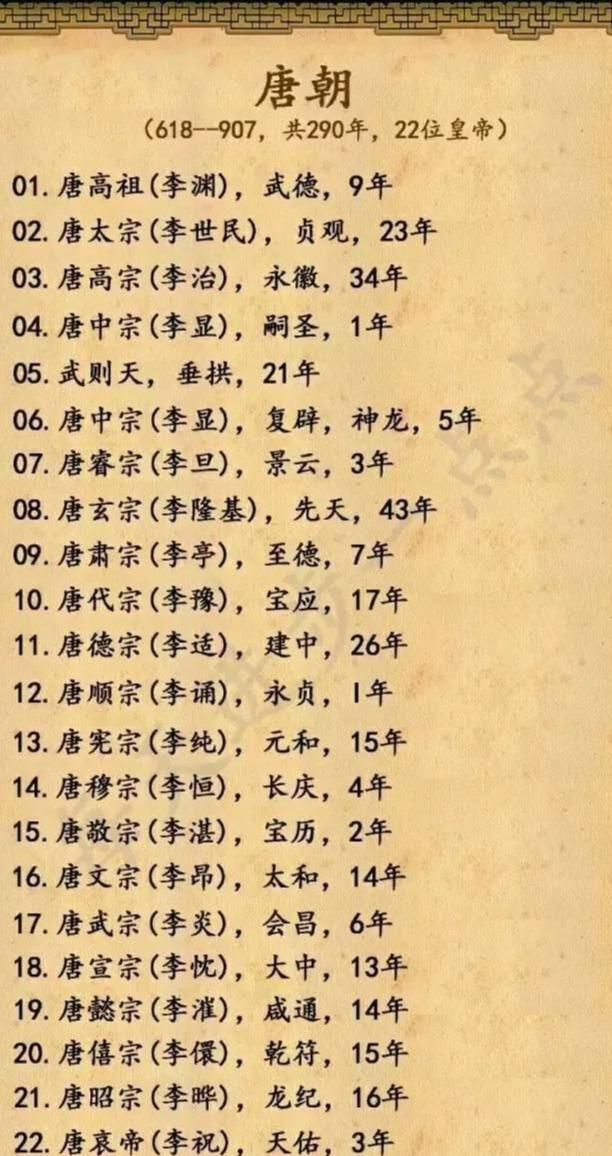 唐朝
（618--907，共290年，22位皇帝）
01.唐高祖(李渊)，武德，9年
02.唐太宗(李世民)，贞观，23年
03.唐高宗(李治)，永徽，34年
04.唐中宗(李显)，嗣圣，1年
05.武则天，垂拱，21年
06.唐中宗(李显)，复辟，神龙，5年
07.唐睿宗(李旦)，景云，3年
08.唐玄宗(李隆基)，先天，43年
09.唐肃宗(李亭)，至德，7年
10.唐代宗(李豫)，宝应，17年
11.唐德宗(李适)，建中，26年
12.唐顺宗(李诵)，永贞，1年
13.唐宪宗(李纯)，元和，15年
14.唐穆宗(李恒)，长庆，4年
15.唐敬宗(李湛)，宝历，2年
16.唐文宗(李昂)，太和，14年
17.唐武宗(李炎)，会昌，6年
18.唐宣宗(李忱)，大中，13年
19.唐懿宗(李漼)，咸通，14年
20.唐僖宗(李儇)，乾符，15年
21.唐昭宗(李晔)，龙纪，16年
22.唐哀帝(李祝)，天佑，3年